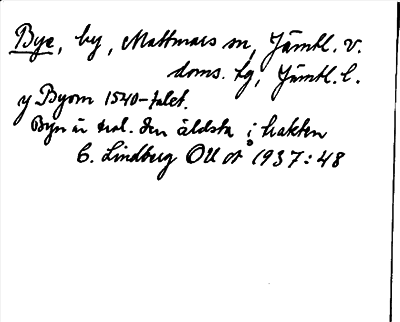 Bye, by, Mattmars sn, Jämtl. v.
doms. tg, Jämtl. l.
y Byom 1540-talet.
Byn är trol. den äldsta i trakten
C. Lindberg OUÅ 1937:48